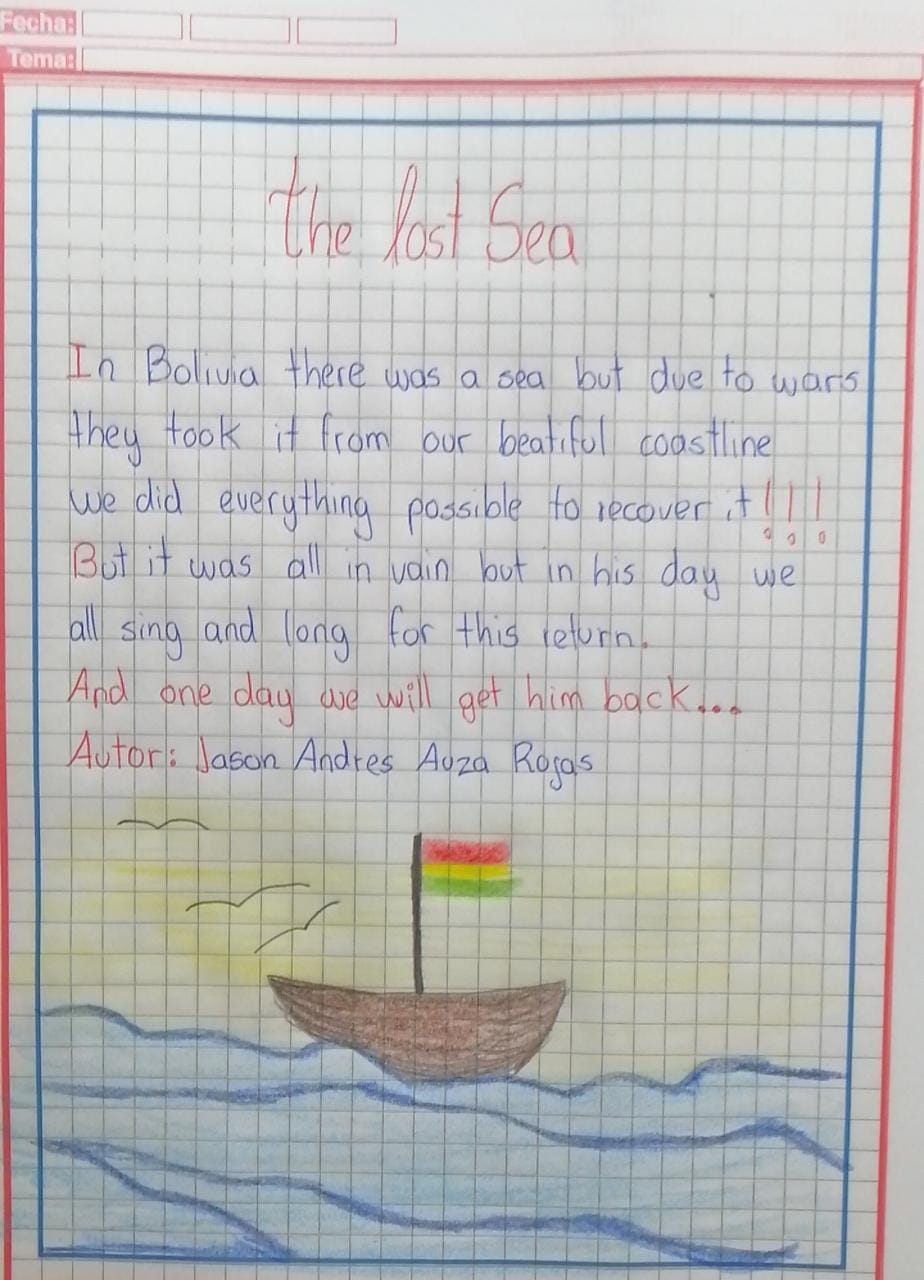 Fecha:
Tema:
the lost Sea
In Bolivia there was a sea but due to wars
they took it from our beatiful coastline
we did everything possible to recover it!!!
But it was all in vain but in his day we
all sing and long for this return.
And one day we will get him back...
Autor: Jason Andres Auza Rojas